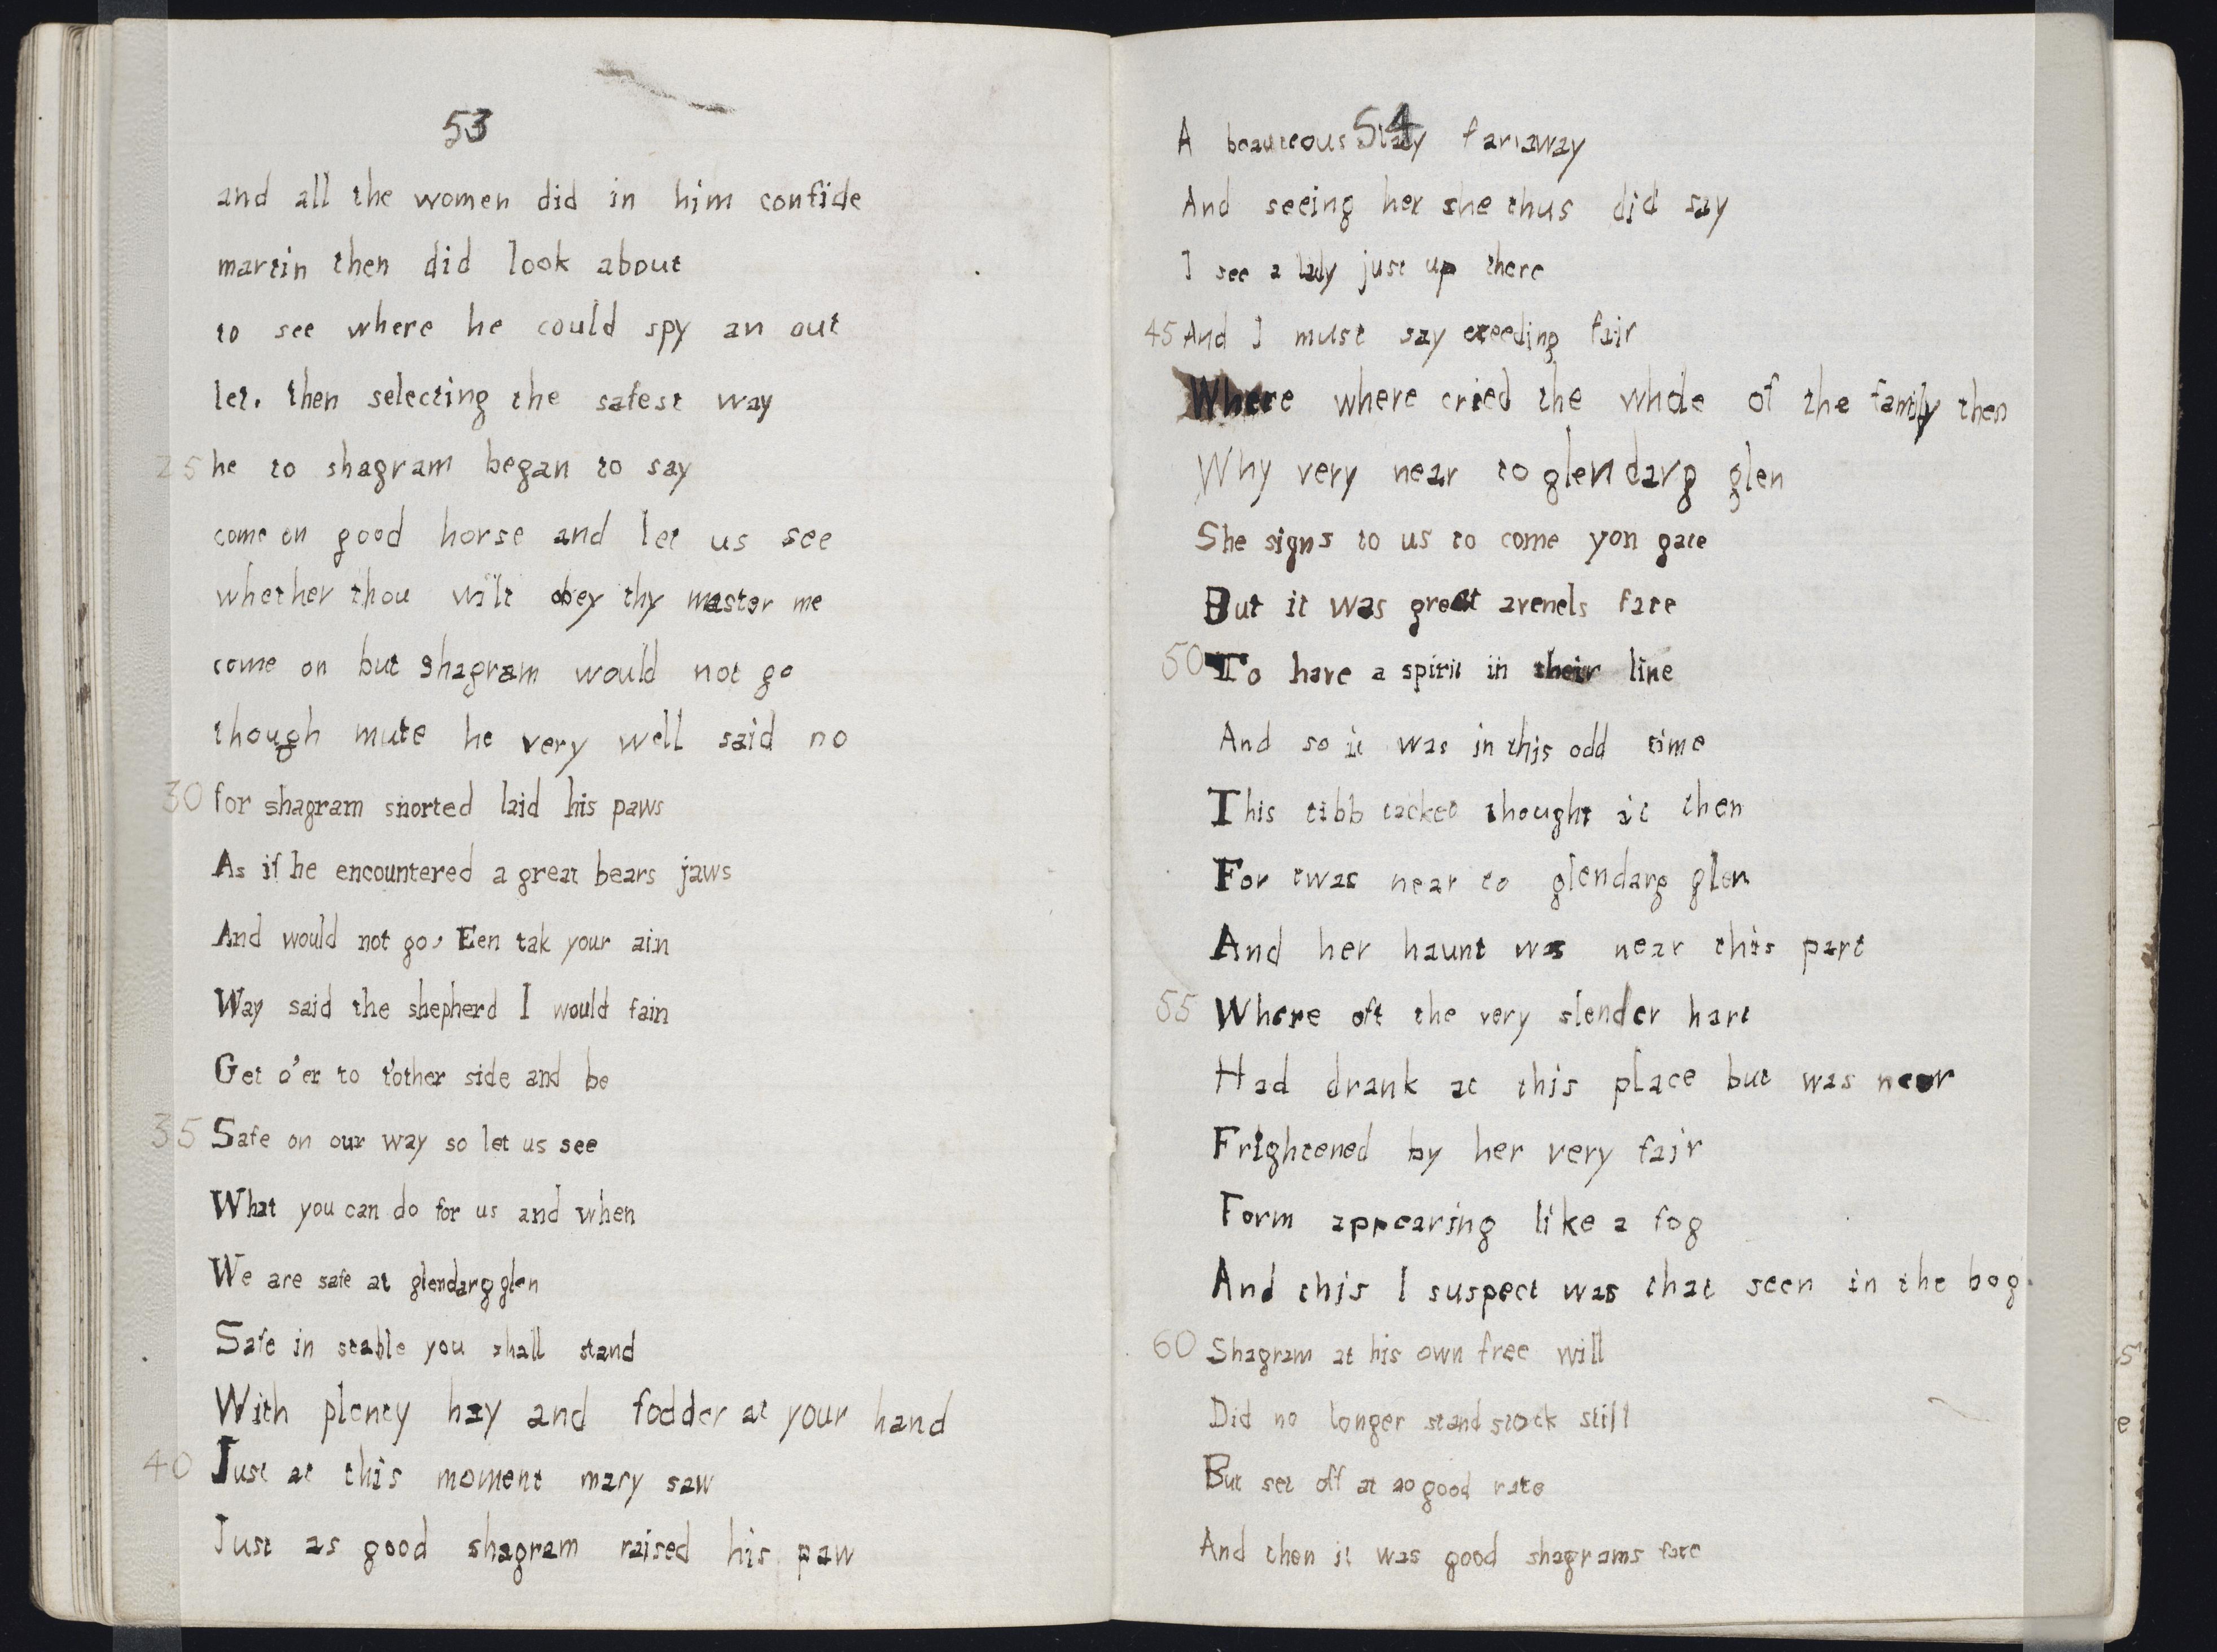 53
and all the women did in him confide
martin then did look about
to see where he could spy an out
let. then selecting the safest way
25 he to shagram began to say
come on good horse and let us see
whether thou wilt obey thy master me
come on but shagram would not go
though mute he very well said no
30 for shagram snorted laid his paws
As if he encountered a great bears jaws
And would not go, Een tak your ain
Way said the shepherd I would fain
Get o'er to t'other side and be
35 Safe on our way so let us see
What you can do for us and when
We are safe at glendarg glen
Safe in stable you shall stand
With plenty hay and fodder at your hand
40 Just at this moment mary saw
Just as good shagram raised his paw
54
A beauteous lady far away
And seeing her she thus did say
I see a lady just up there
45 And I must say exeeding fair
Where where cried the whole of the family then
Why very near to glendarg glen
She signs to us to come yon gate
But it was great avenels fate
50 To have a spirit in their line
And so it was in this odd time
This tibb tacket thought it then
For twas near to glendarg glen
And her haunt was near this part
55 Where oft the very slender hart
Had drank at this place but was neer
Frightened by her very fair
Form appearing like a fog
And this I suspect was that seen in the bog.
60 Shagram at his own free will
Did no longer stand stock still
But set off at no good rate
And then it was good shagrams fate